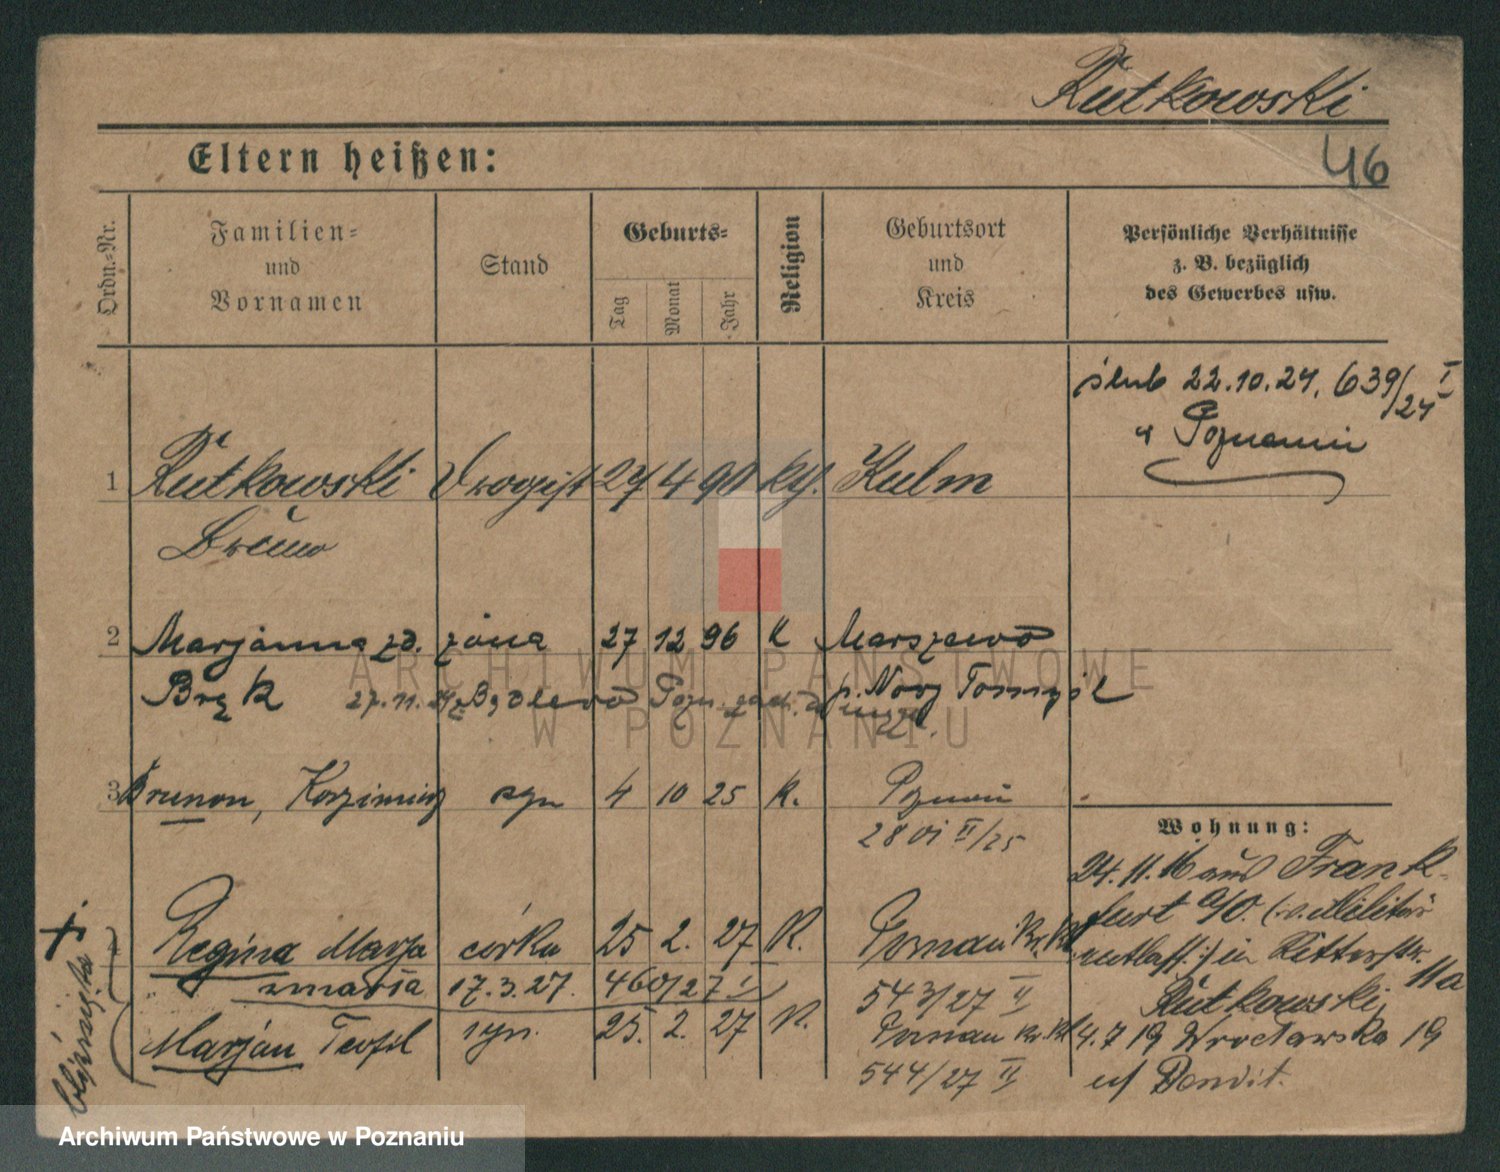 Rutkowski
46
Eltern heißen:
Ordn.-Nr.
Familien-
und
Vornamen
Stand
Geburts-
Tag
Monat
Jahr
Religion
Geburtsort
und
Kreis
Persönliche Verhältnisse
z. B. bezüglich
des Gewerbes usw.
ślub 22.10.24. 639/24 I
w Poznaniu
1 Rutkowski Drogist 27 4 90 Kulm
Bruno
2 Marjanna zd. żona 27 12 96 K Marszewo
Bręk 27.11. p. Nowy Tomyśl
3 Brunon, Kazimierz syn 4 10 25 K. Poznań
28 VI II/25
Wohnung:
24.11.16 aus Frank-
furt a/O. (v. Militär
entlass.) in Ritterstr.
11a
Rutkowski
4.7 19 Wrocławska 19
Regina Marja córka 25 2. 27 K. Poznań
zmarła 17.3.27. 460/27 I
543/27 II
Marjan Teofil syn. 25. 2. 27 K. Poznań
544/27 II
bliźnięta
ARCHIWUM PAŃSTWOWE
W POZNANIU
Archiwum Państwowe w Poznaniu